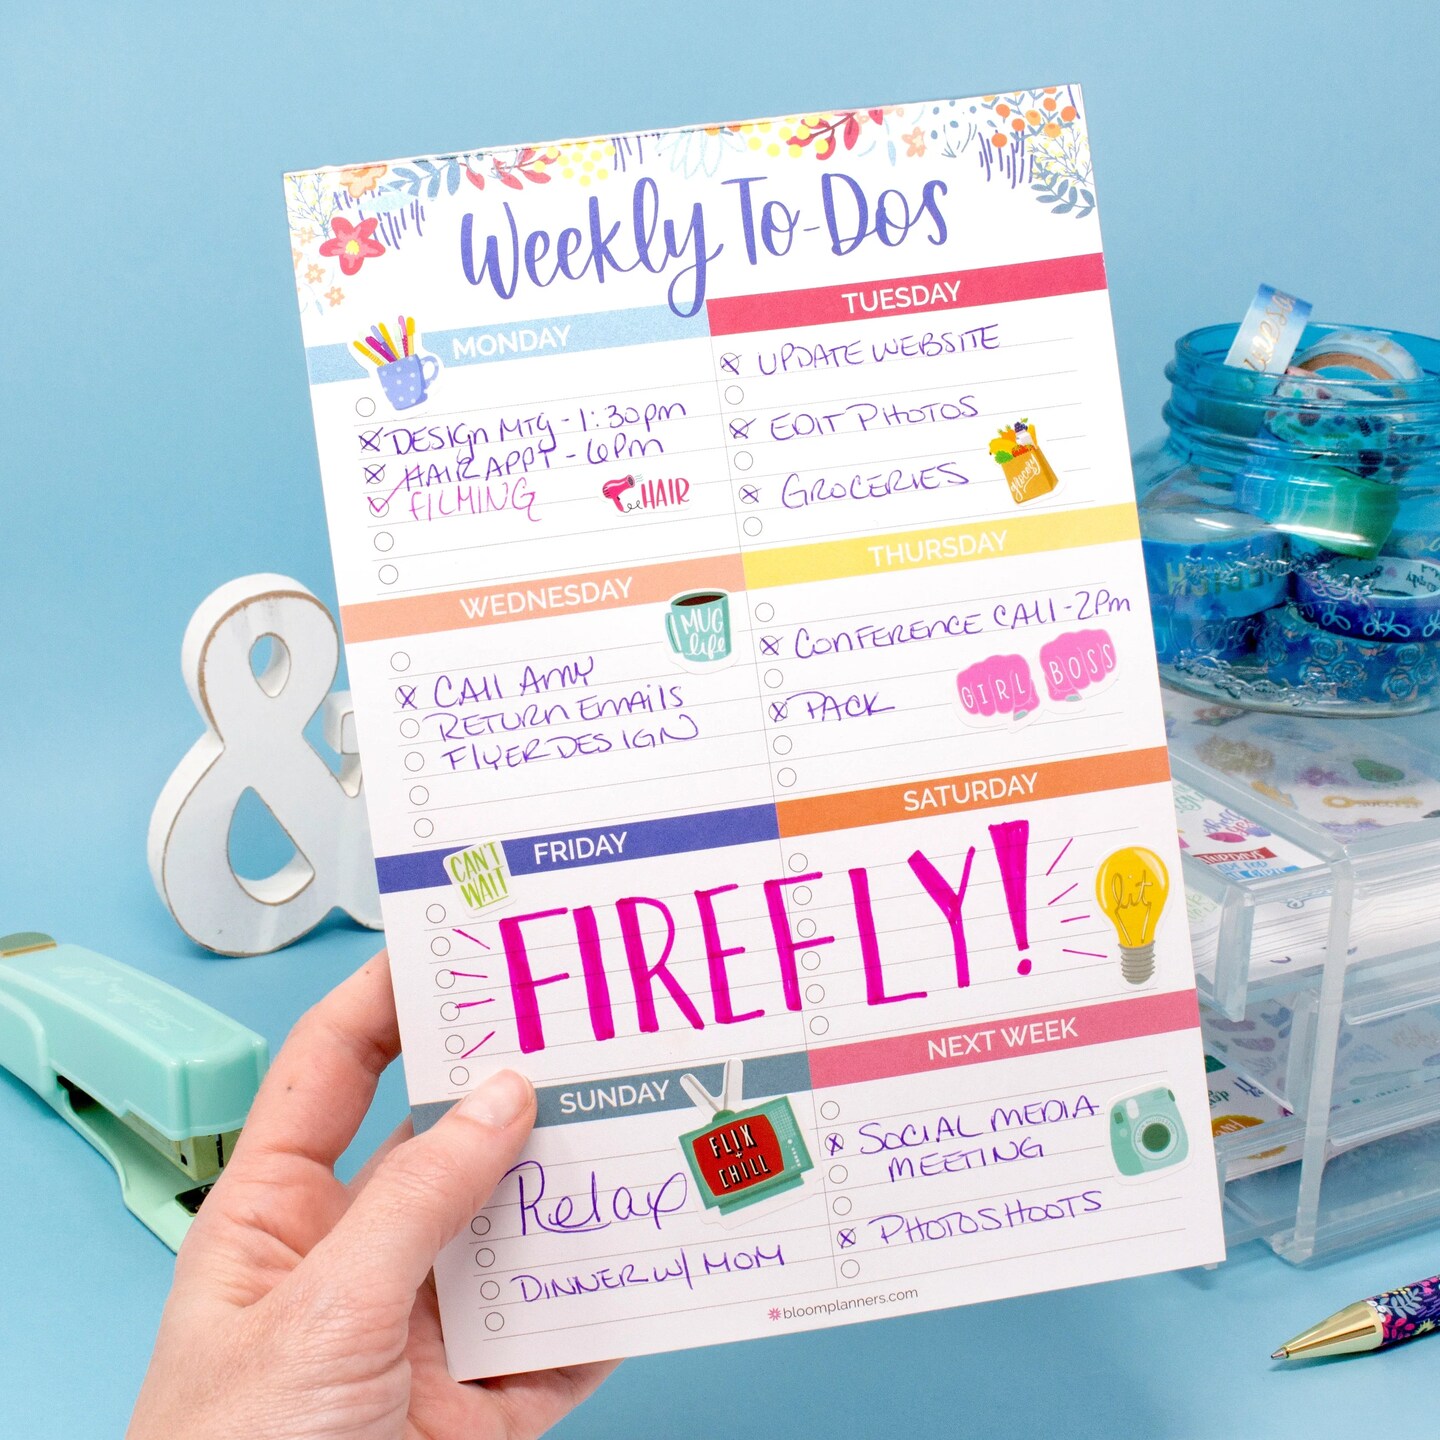 Weekly To-Dos
MONDAY
DESIGN MTG - 1:30pm
HAIR APPT - 6pm
FILMING
HAIR
TUESDAY
UPDATE WEBSITE
EDIT PHOTOS
GROCERIES
grocery
WEDNESDAY
MUG
life
CALL AMY
RETURN EMAILS
FLYER DESIGN
THURSDAY
CONFERENCE CALL - 2PM
PACK
GIRL BOSS
FRIDAY
CAN'T
WAIT
SATURDAY
FIREFLY!
lit
SUNDAY
FLIX
+
CHILL
Relax
DINNER W/ MOM
NEXT WEEK
SOCIAL MEDIA
MEETING
PHOTOSHOOTS
bloomplanners.com
SUCCESS